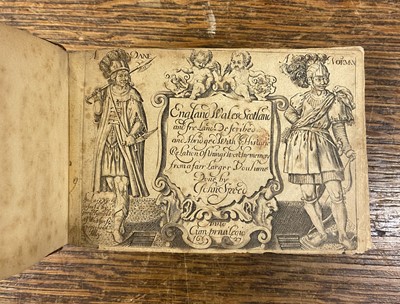 A DANE
A NORMAN
England Wales Scotland
and Ireland Described
and Abridged With ye Historic
Relation of things worthy memory
from a farr larger Voulume
Done by
John Speed
Anno
Cum privilegio
1627